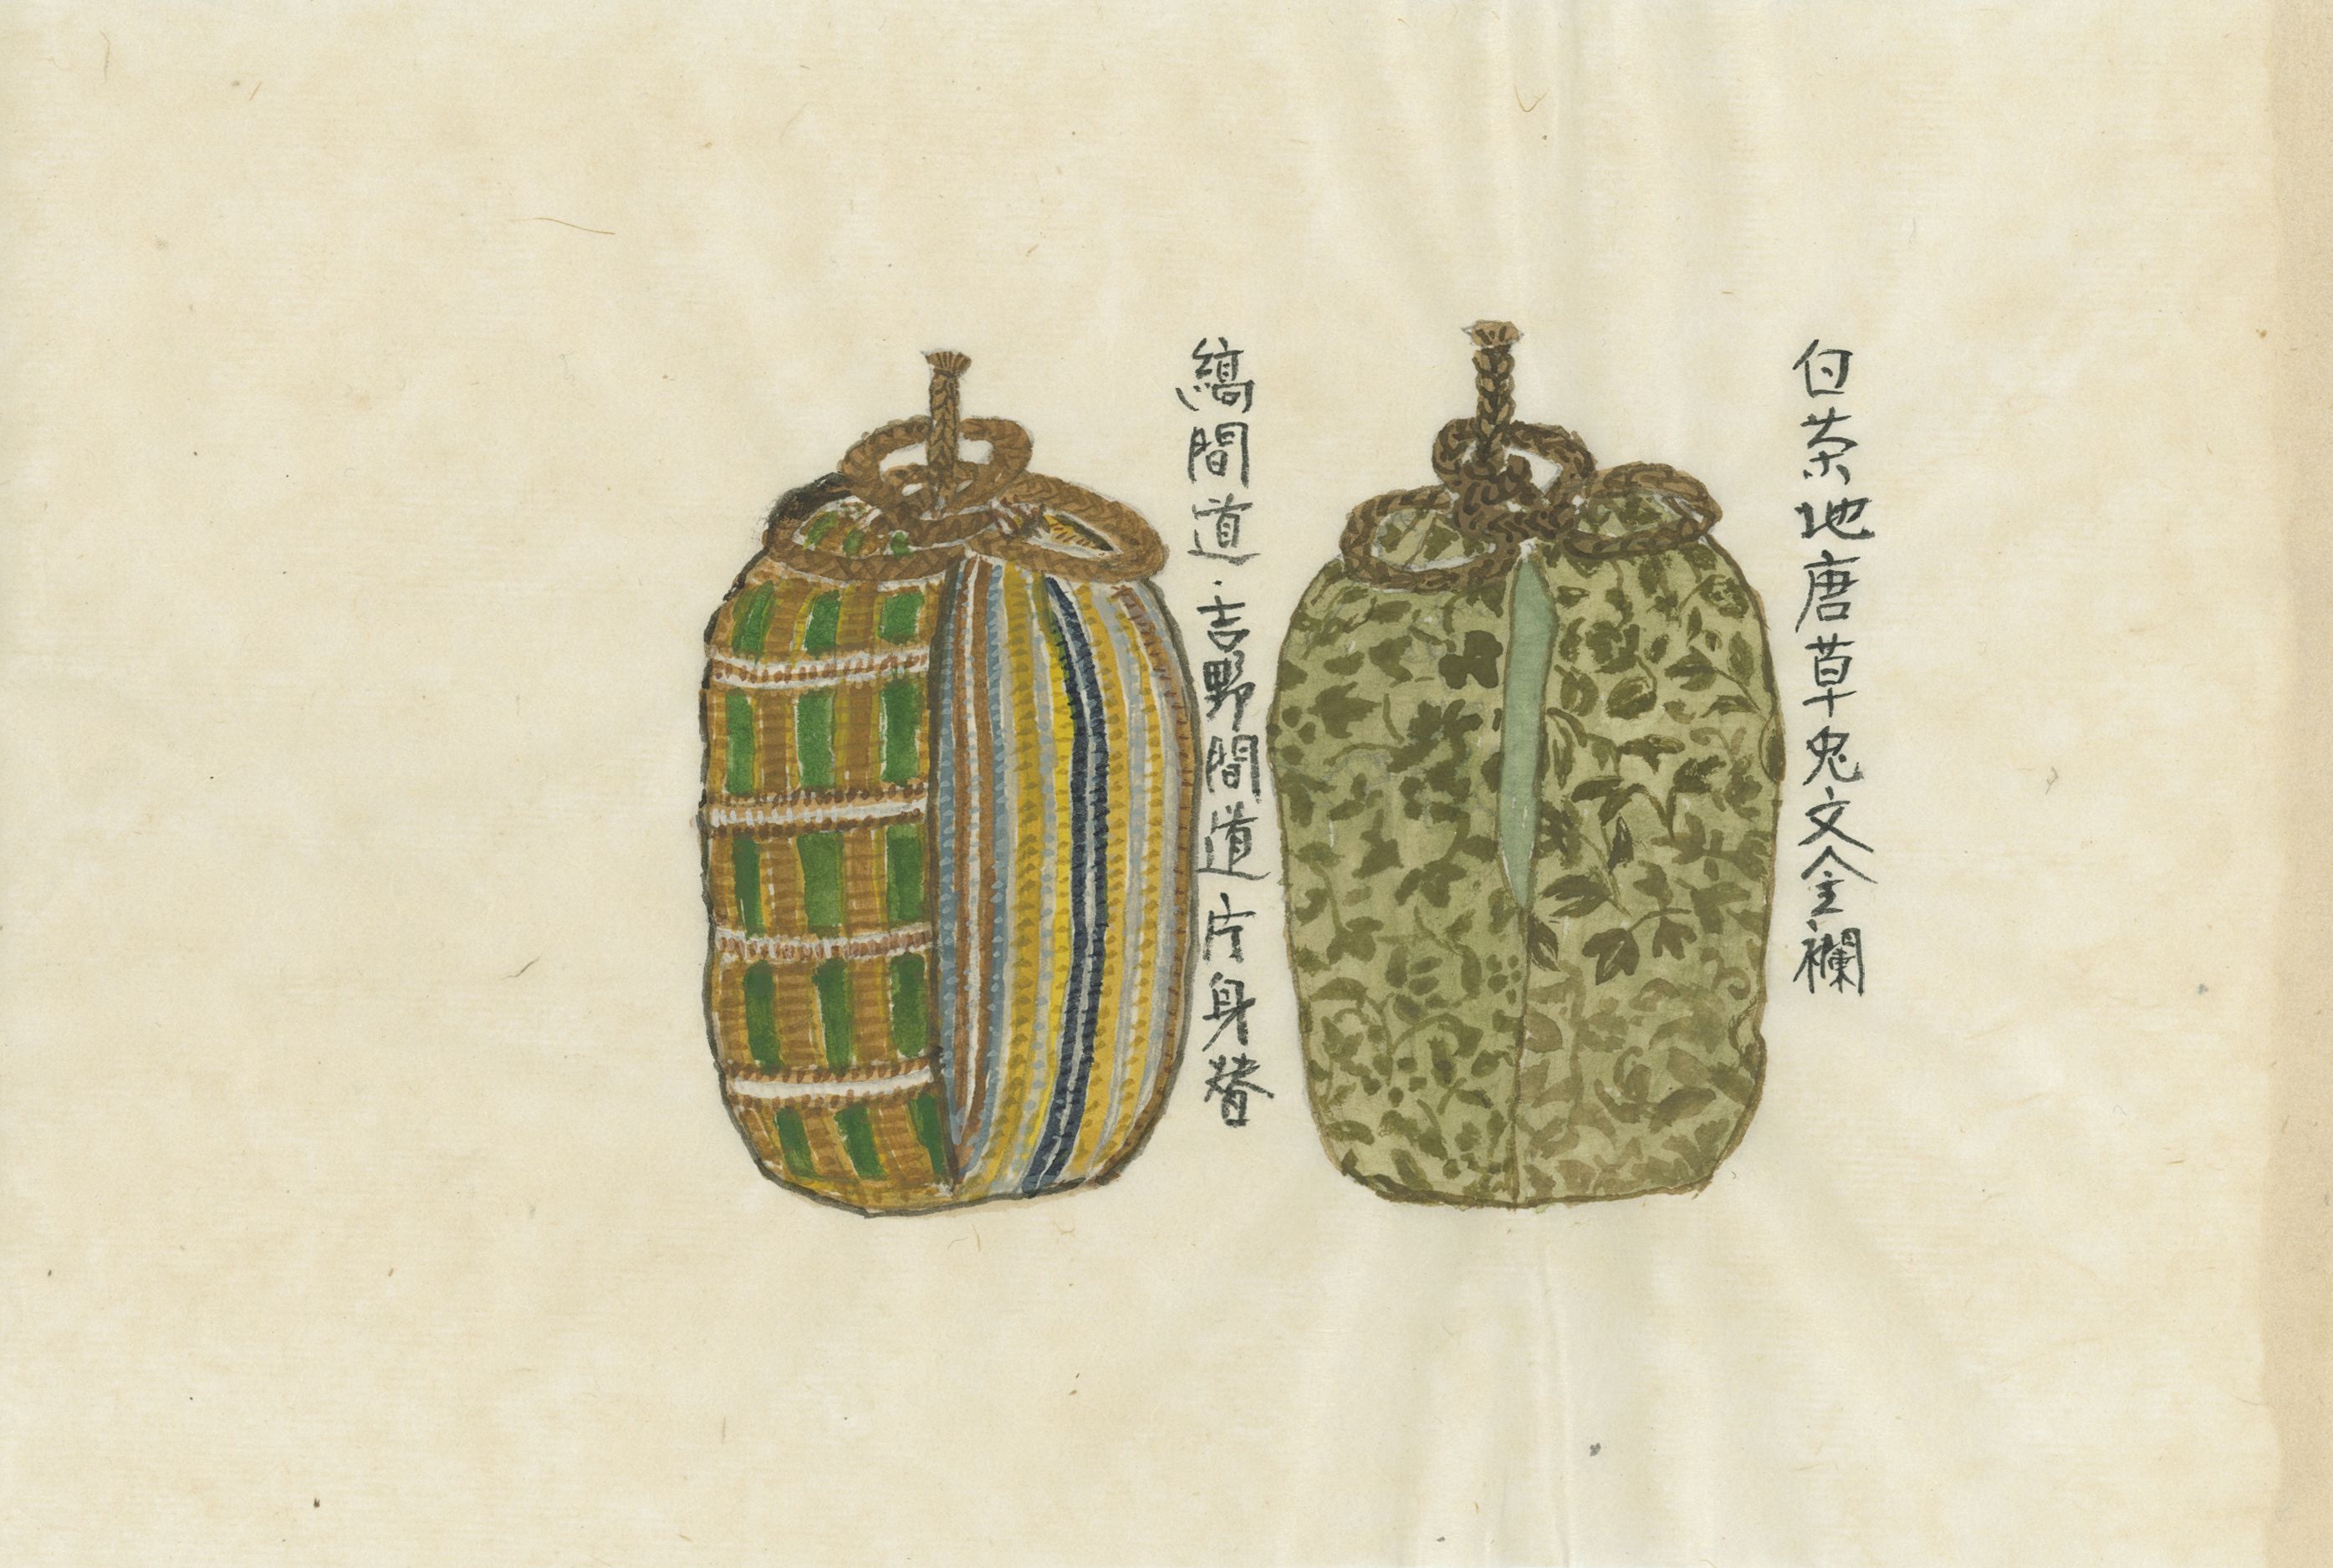 白茶地唐草兎文金襴
縞間道・吉野間道片身替